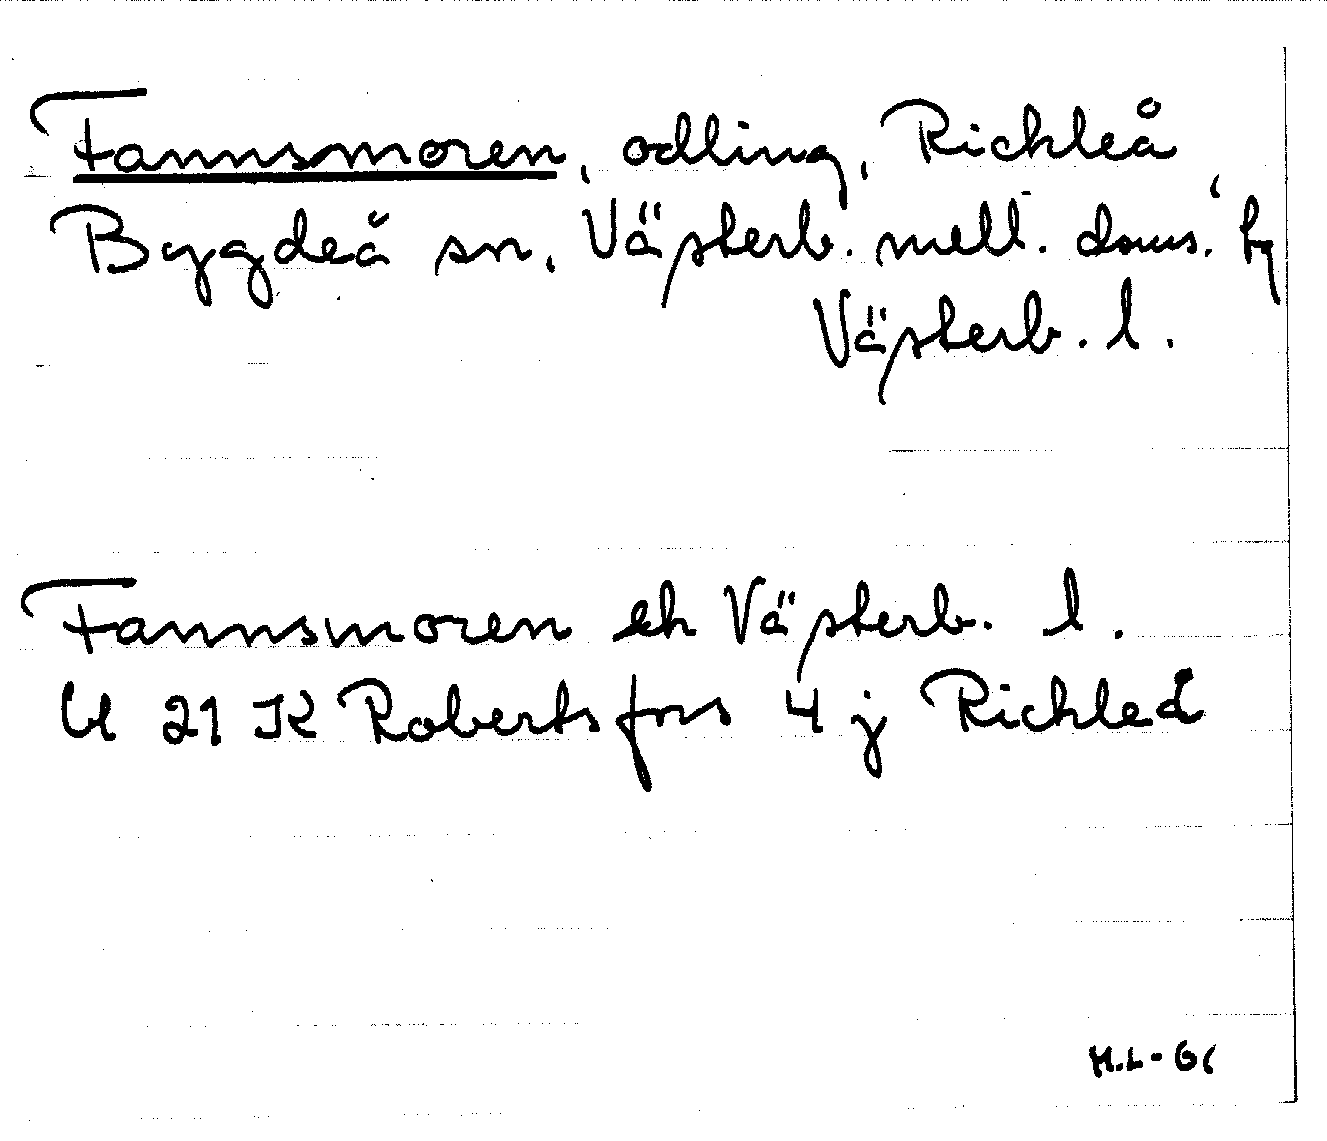 Fannsmoren, odling, Rickleå
Bygdeå sn, Västerb. mell. doms. by
Västerb. l.
Fannsmoren ek Västerb. l.
U 21 K Robertsfors 4 j Rickleå
H.L-61